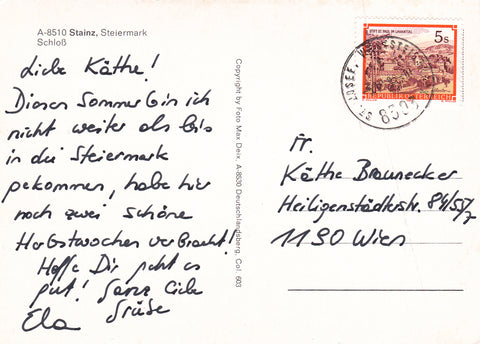 A-8510 Stainz, Steiermark
Schloß
Liebe Käthe!
Diesen Sommer bin ich
nicht weiter als bis
in die Steiermark
gekommen, habe hier
noch zwei schöne
Herbstwochen verbracht!
Hoffe Dir geht es
gut! Ganz liebe
Grüße
Ela
Copyright by Foto Max Deix, A-8530 Deutschlandsberg, Col. 603
STIFT ST. PAUL IM LAVANTTAL
5s
REPUBLIK ÖSTERREICH
ST. JOSEF, WESTSTEIERM
8503
Fr.
Käthe Braunecker
Heiligenstädterstr. 84/55/7
1190 Wien